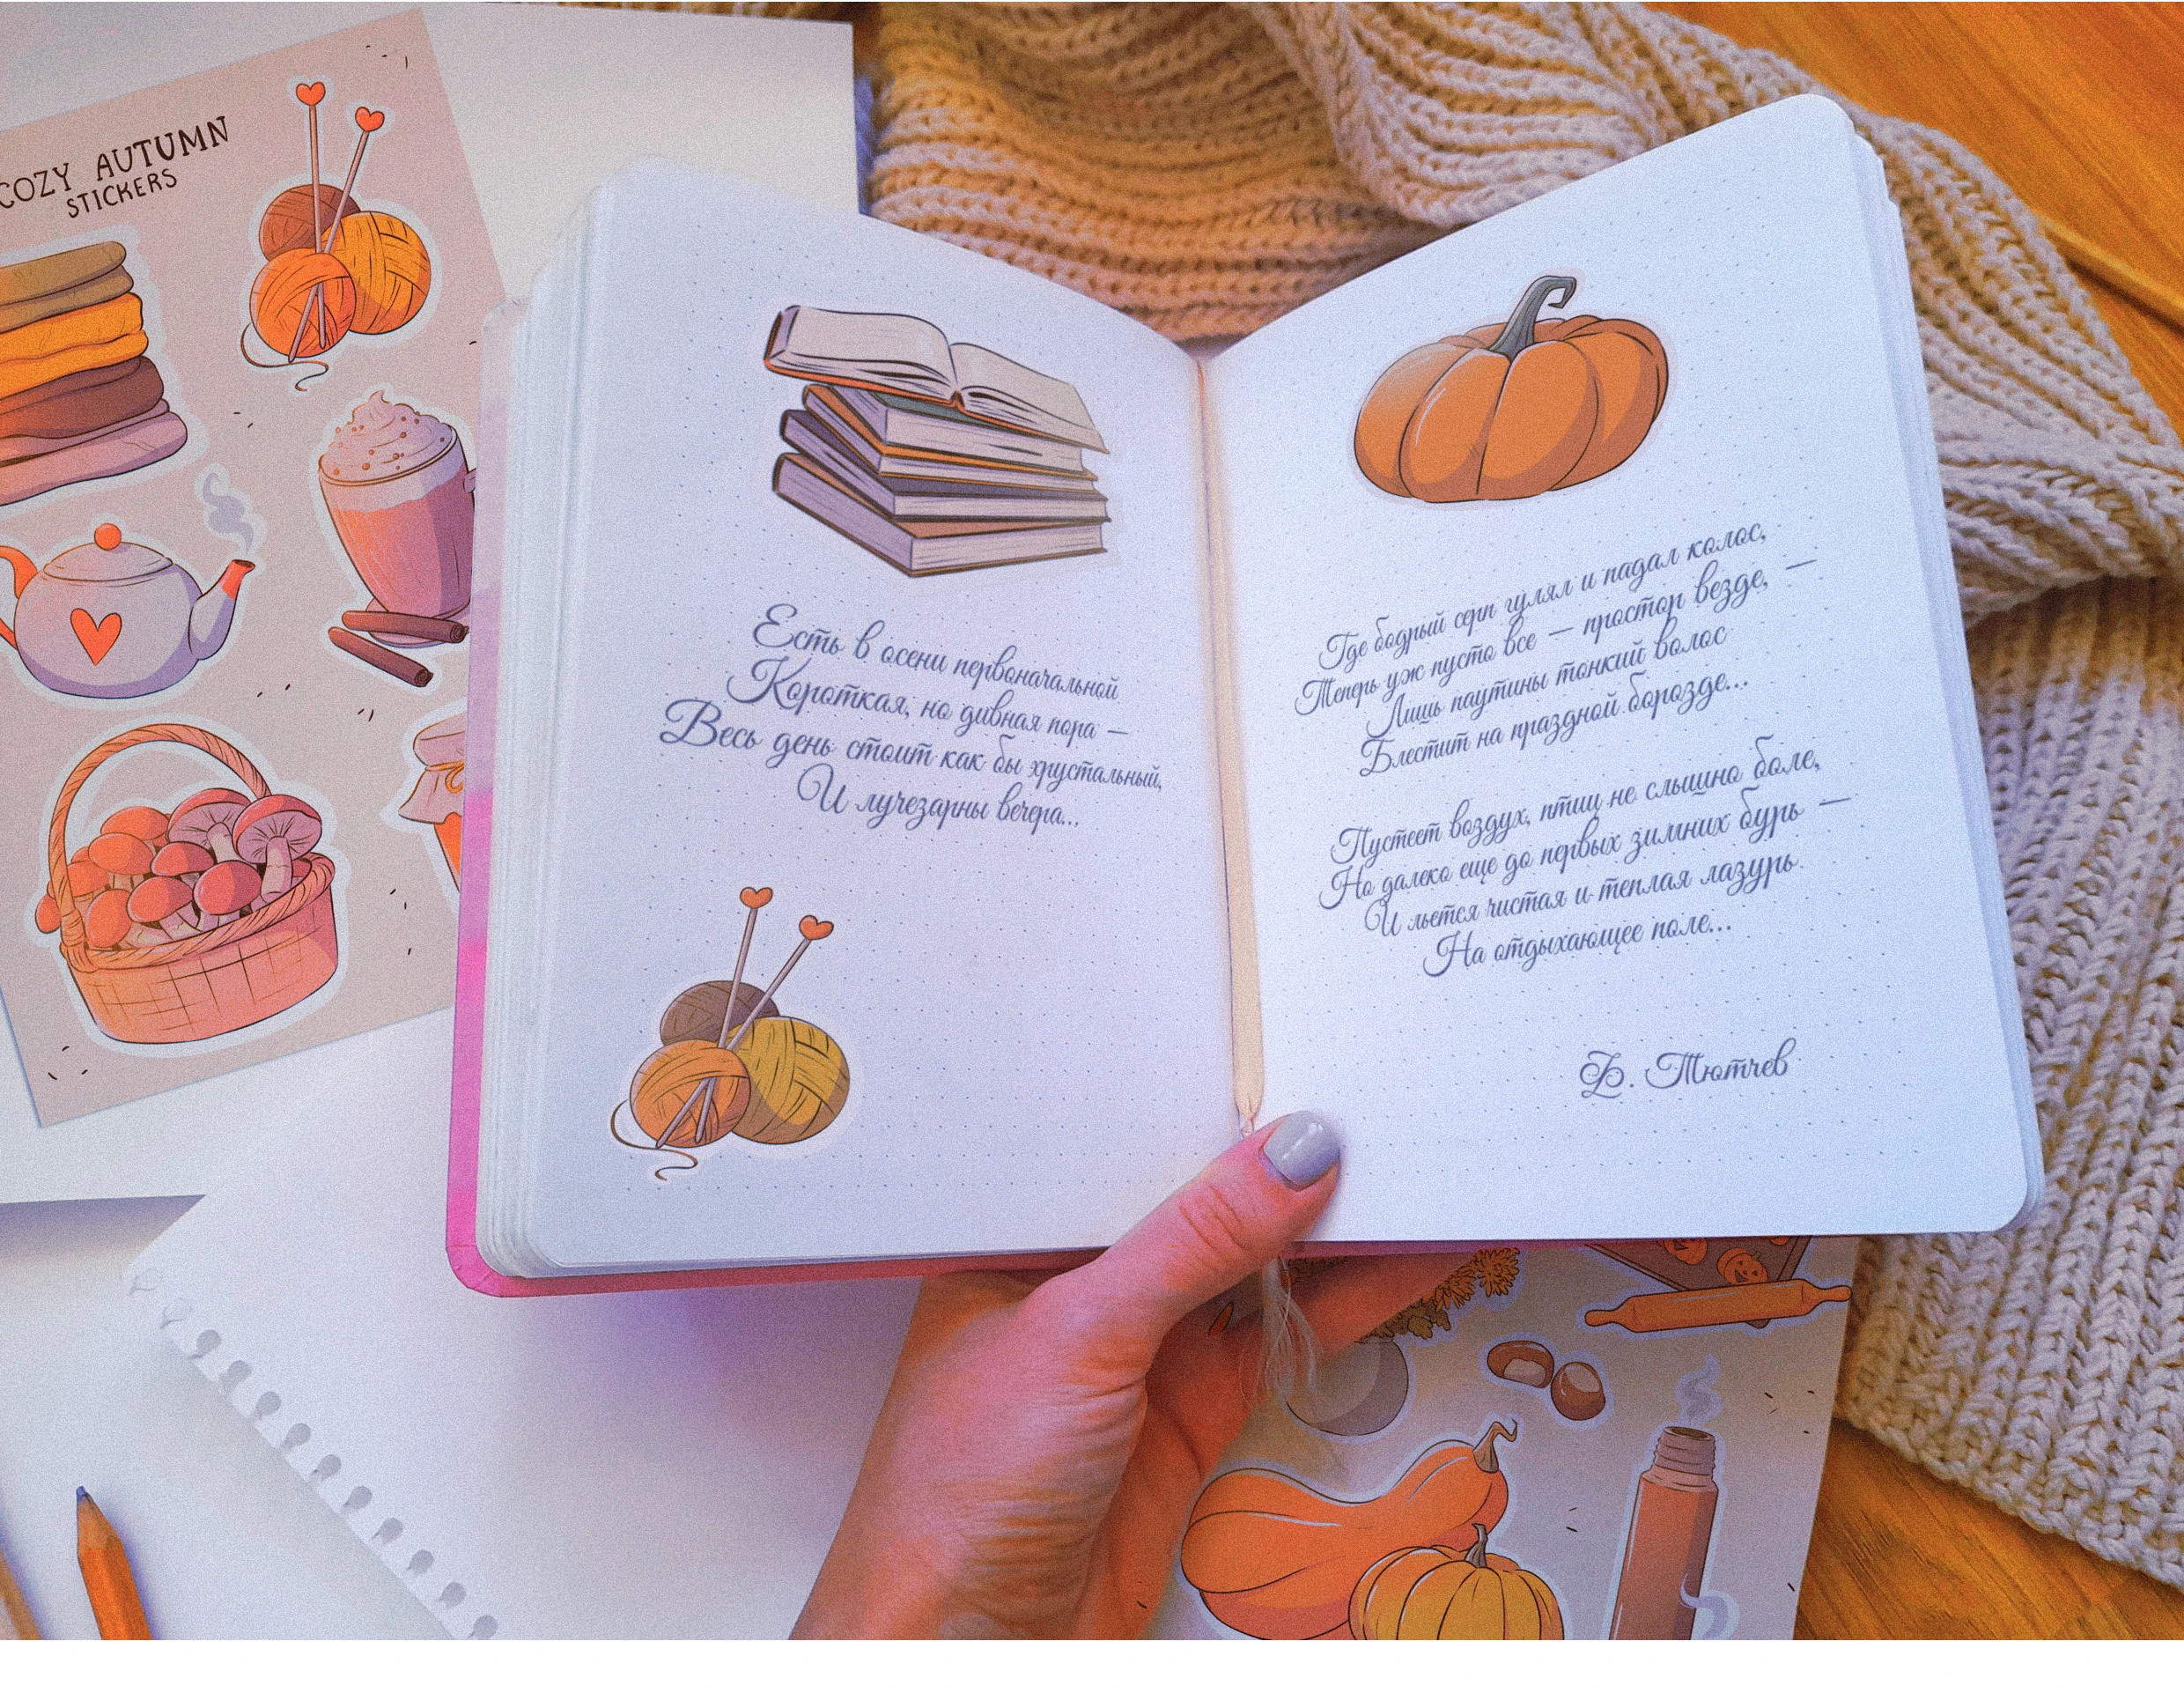 COZY AUTUMN
STICKERS
Есть в осени первоначальной
Короткая, но дивная пора —
Весь день стоит как бы хрустальный,
И лучезарны вечера...
Где бодрый серп гулял и падал колос,
Теперь уж пусто все — простор везде, —
Лишь паутины тонкий волос
Блестит на праздной борозде...
Пустеет воздух, птиц не слышно боле,
Но далеко еще до первых зимних бурь —
И льется чистая и теплая лазурь
На отдыхающее поле...
Ф. Тютчев